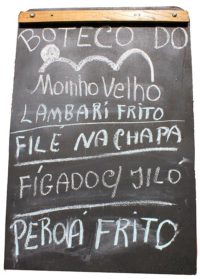 BOTECO DO
Moinho Velho
LAMBARÍ FRITO
FILÉ NA CHAPA
FÍGADO C/ JILÓ
PEROÁ FRITO